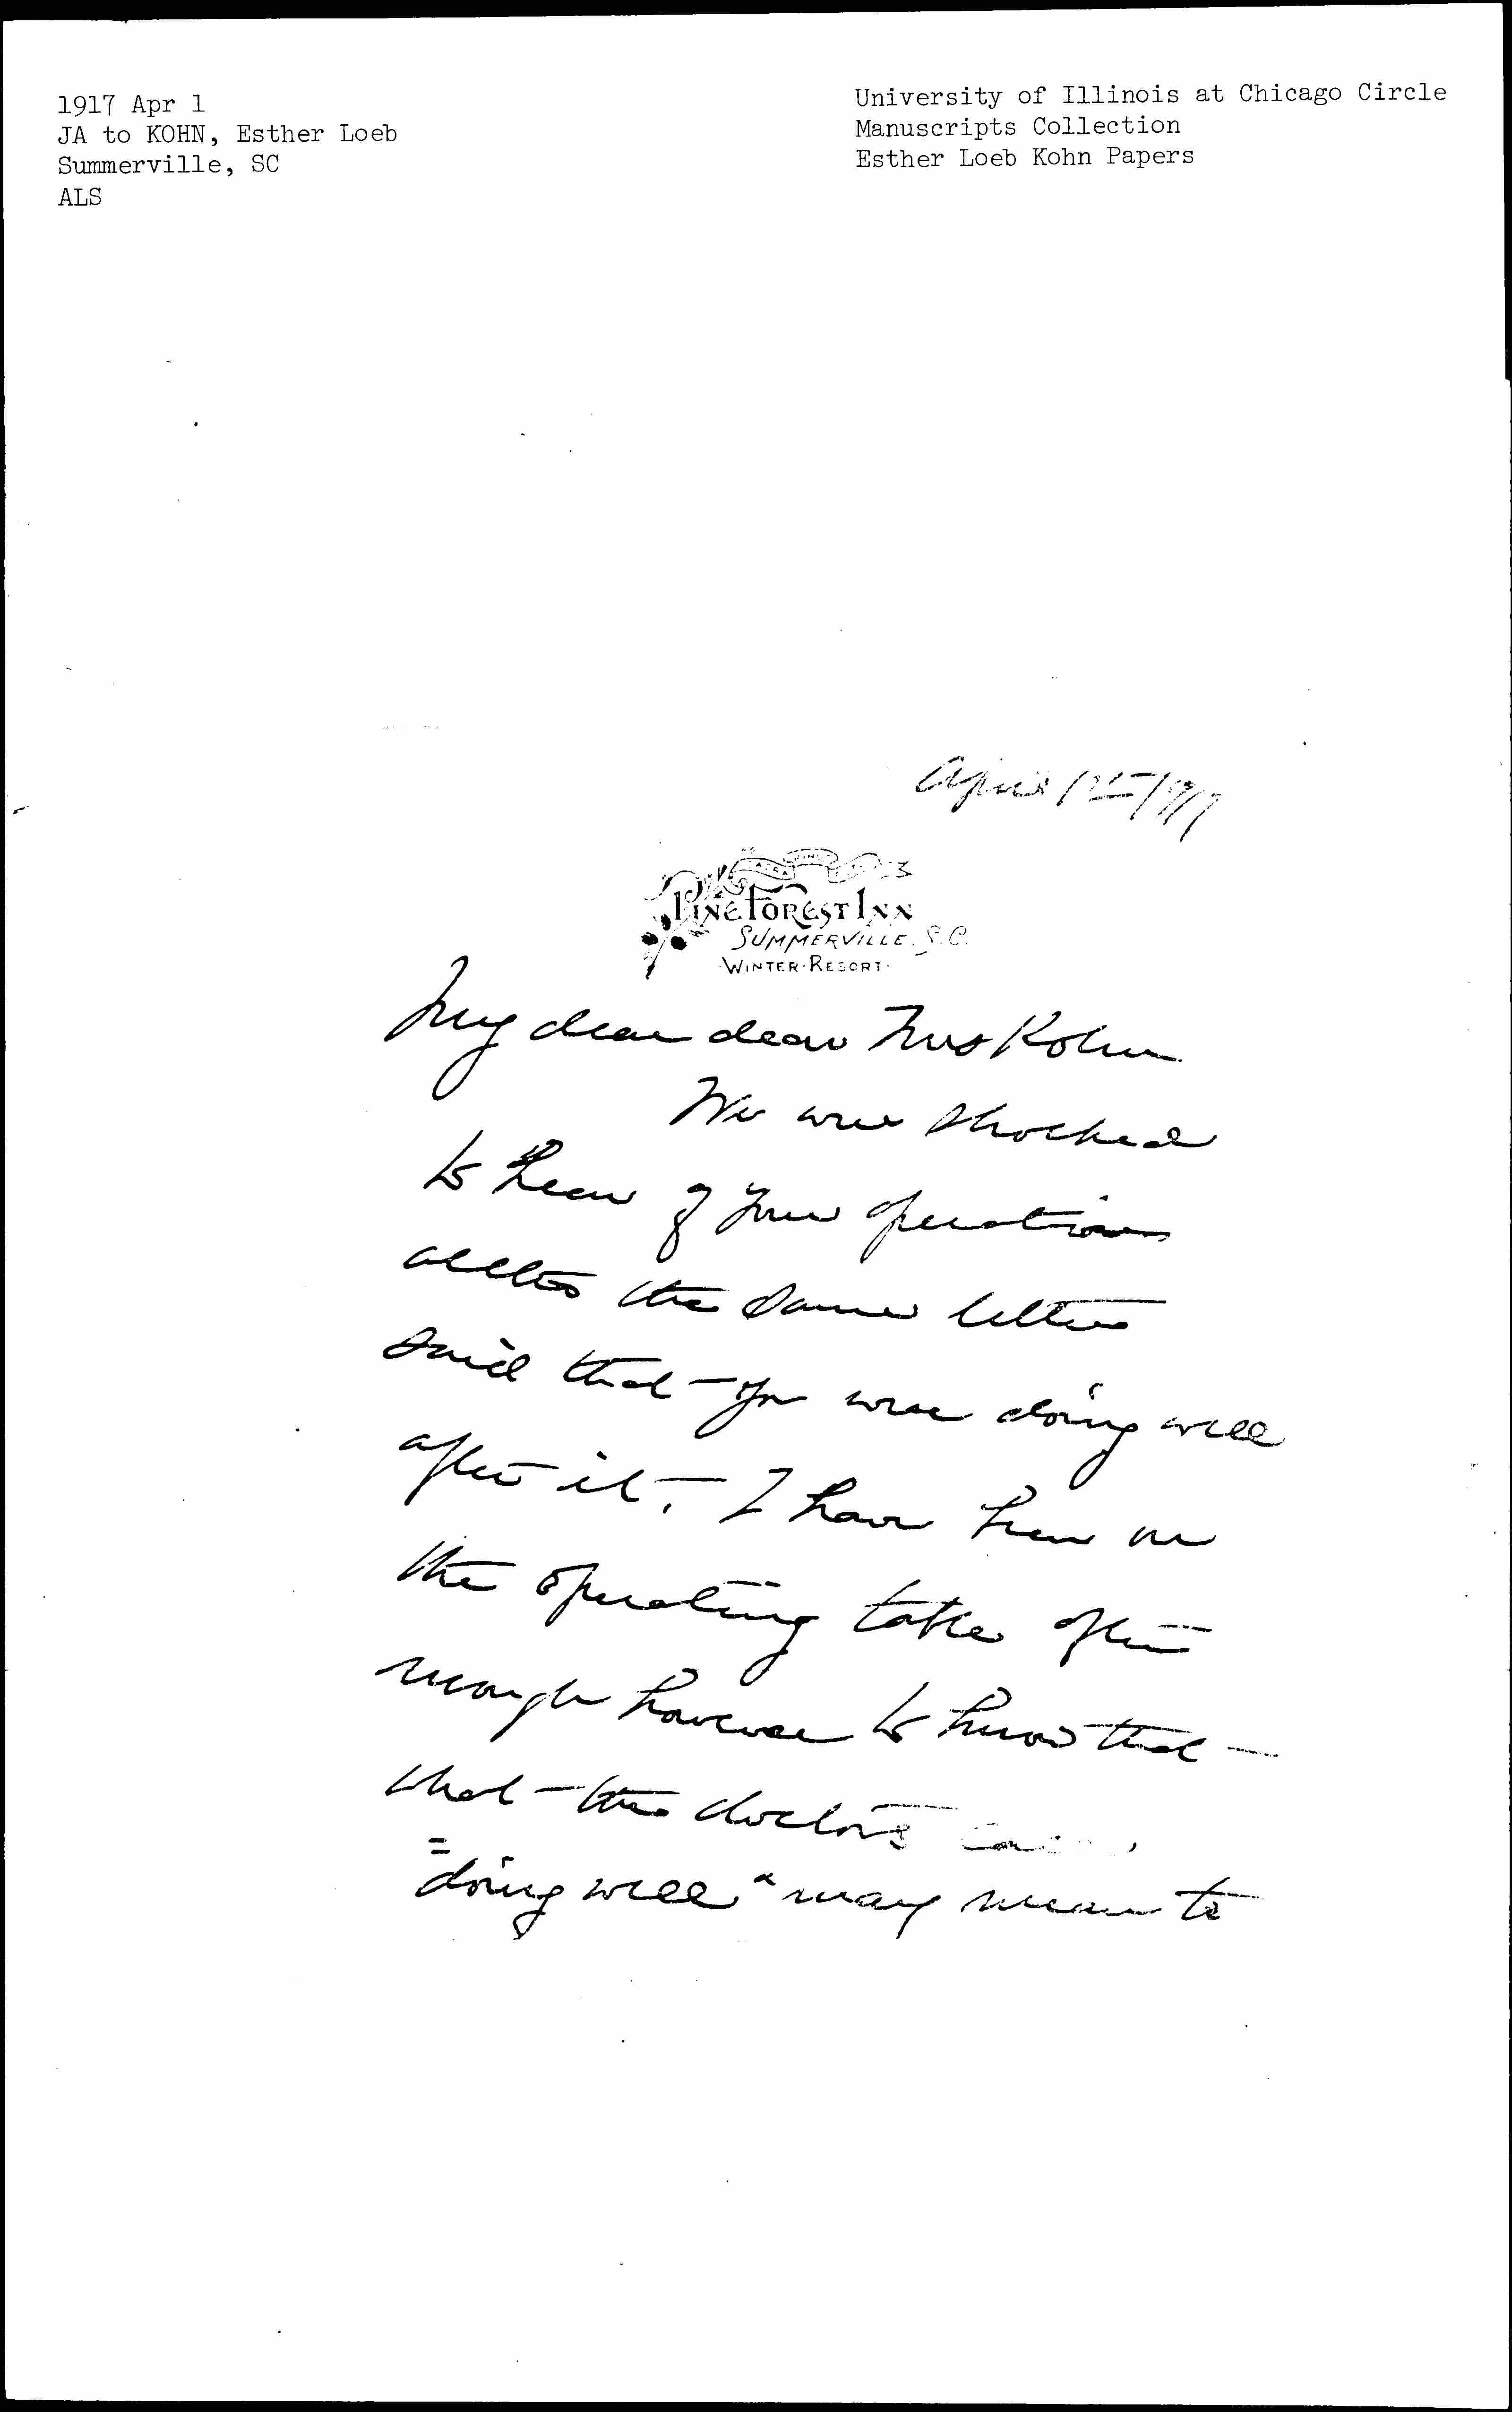 1917 Apr 1
JA to KOHN, Esther Loeb
Summerville, SC
ALS
University of Illinois at Chicago Circle
Manuscripts Collection
Esther Loeb Kohn Papers
April 1st 1917
PINE FOREST INN
SUMMERVILLE, S.C.
WINTER·RESORT·
My dear dear Mrs Kohn
We were shocked
to hear of your operation
altho the same letters
said that you were doing well
after it. I have been on
the operating table often
enough however to know that
what the doctors
"doing well" may mean to